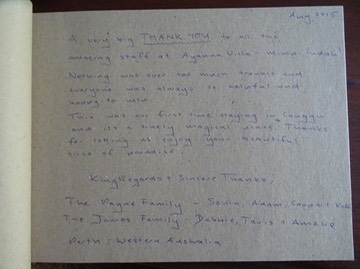 Aug 2015
A very big THANK YOU to all the
amazing staff at Ayanna Villa - Mimpi Indah!
Nothing was ever too much trouble and
everyone was always so helpful and
happy to help.
This was our first time staying in Canggu
and its a truly magical place. Thanks
for letting us enjoy your beautiful
slice of paradise.
Kind Regards & Sincere Thanks,
The Payne Family - Sonia, Adam, Cooper &
The James Family - Debbie, Travis & Amelie
Perth, Western Australia